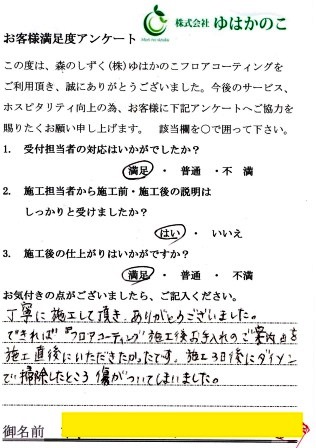 株式会社 ゆはかのこ
お客様満足度アンケート
この度は、森のしずく(株)ゆはかのこフロアコーティングを
ご利用頂き、誠にありがとうございました。今後のサービス、
ホスピタリティ向上の為、お客様に下記アンケートへご協力を
賜りたくお願い申し上げます。 該当欄を○で囲って下さい。
1. 受付担当者の対応はいかがでしたか?
満足 ・ 普通 ・ 不 満
2. 施工担当者から施工前・施工後の説明は
しっかりと受けましたか?
はい ・ いいえ
3. 施工後の仕上がりはいかがですか?
満足 ・ 普通 ・ 不満
お気付きの点がございましたら、ご記入ください。
丁寧に施工して頂き、ありがとうございました。
できれば“フロアコーティング”施工後お手入れのご案内を
施工直後にいただきたかったです。施工3日後にダイソン
で掃除したところ傷がついてしまいました。
御名前